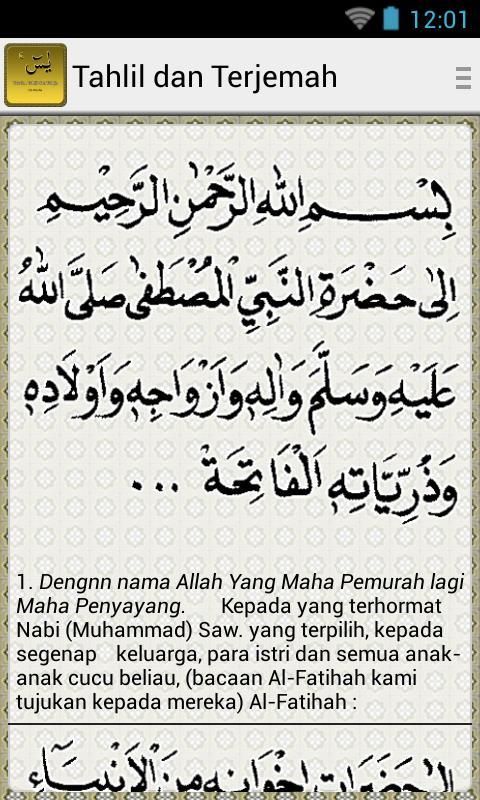 12:01
يٰسٓ
Tahlil dan Terjemah
بِسْمِ اللهِ الرَّحْمٰنِ الرَّحِيْمِ
اِلٰى حَضْرَةِ النَّبِيِّ الْمُصْطَفٰى صَلَّى اللهُ
عَلَيْهِ وَسَلَّمَ وَاٰلِهٖ وَاَزْوَاجِهٖ وَاَوْلَادِهٖ
وَذُرِّيَّاتِهٖ اَلْفَاتِحَةْ ...
1. Dengnn nama Allah Yang Maha Pemurah lagi
Maha Penyayang. Kepada yang terhormat
Nabi (Muhammad) Saw. yang terpilih, kepada
segenap keluarga, para istri dan semua anak-
anak cucu beliau, (bacaan Al-Fatihah kami
tujukan kepada mereka) Al-Fatihah :
اِلٰى حَضَرَاتِ اِخْوَانِهٖ مِنَ الْاَنْبِيَآءِ